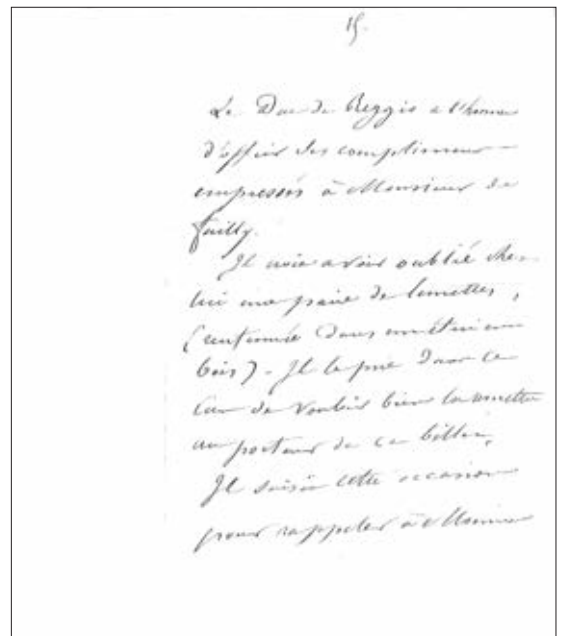 15.
Le Duc de Reggio a l'honneur
d'offrir ses complimens
empressés à Monsieur de
Failly.
Il croit avoir oublié chez
lui une paire de lunettes,
(renfermée dans un étui en
bois). Il le prie dans ce
cas de vouloir bien la remettre
au porteur de ce billet.
Il saisit cette occasion
pour rappeler à Monsieur